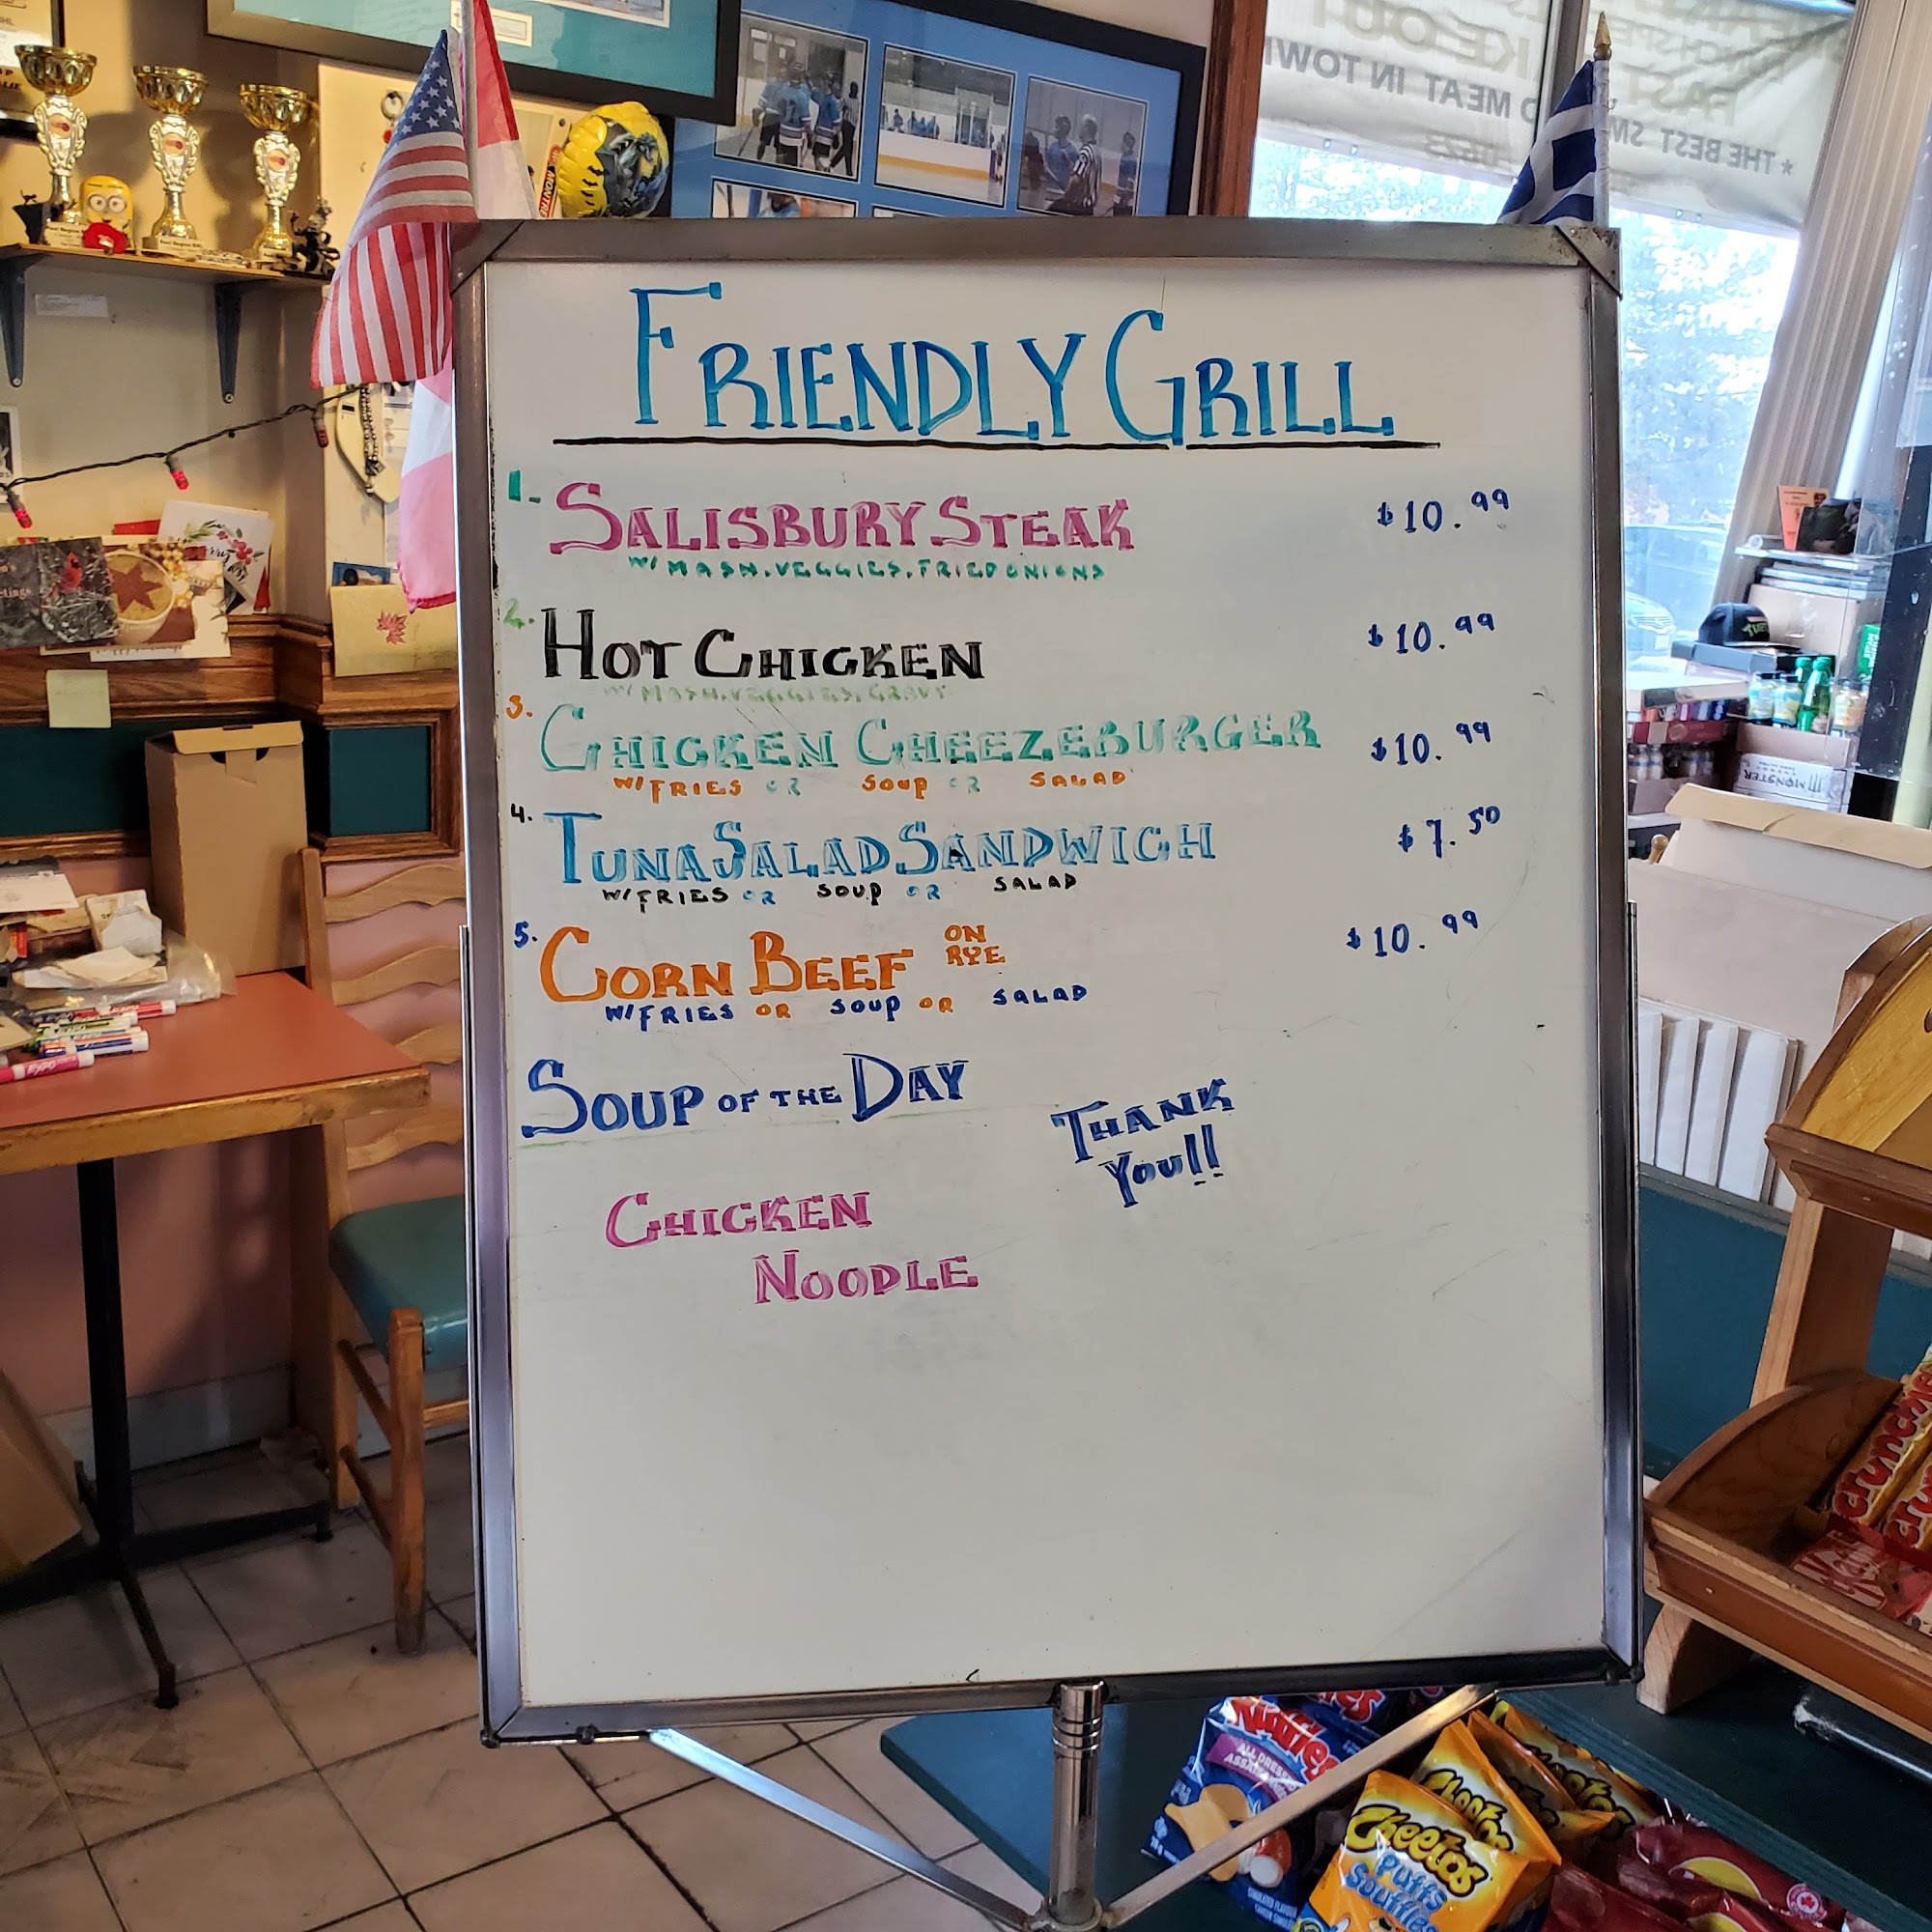 FRIENDLY GRILL
1. SALISBURY STEAK $10.99
W/ MASH. VEGGIES. FRIED ONIONS
2. HOT CHICKEN $10.99
W/ MASH. VEGGIES. GRAVY
3. CHICKEN CHEEZEBURGER $10.99
W/ FRIES OR SOUP OR SALAD
4. TUNA SALAD SANDWICH $7.50
W/ FRIES OR SOUP OR SALAD
5. CORN BEEF ON RYE $10.99
W/ FRIES OR SOUP OR SALAD
SOUP OF THE DAY
THANK YOU!!
CHICKEN
NOODLE
KE OUT
FAST
MEAT IN TOWN
* THE BEST SM
MONSTER
EXPO
Crunchie
Ruffles
ALL DRESSED
Cheetos
Puffs
Soufflés
Cheetos